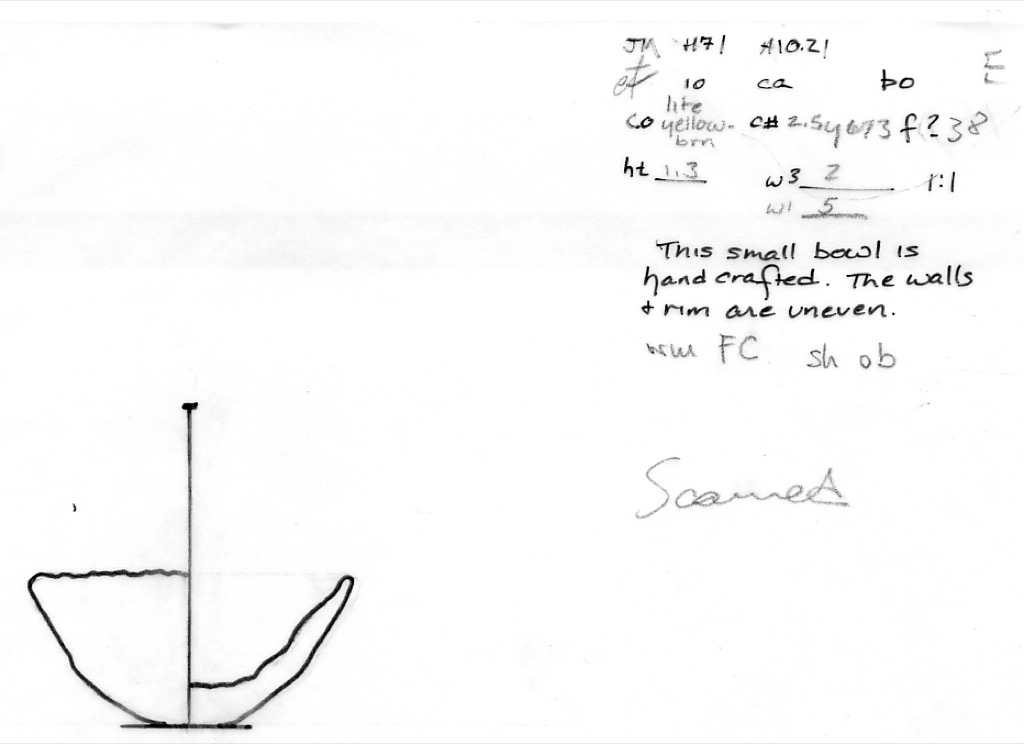 JM H71 A10.21
et 10 ca bo
E
lite
co yellow- c# 2.5y 6?3 f? 38
brn
ht 1.3 w3 2 1:1
w1 5
This small bowl is
handcrafted. The walls
+ rim are uneven.
wm FC sh ob
Scanned